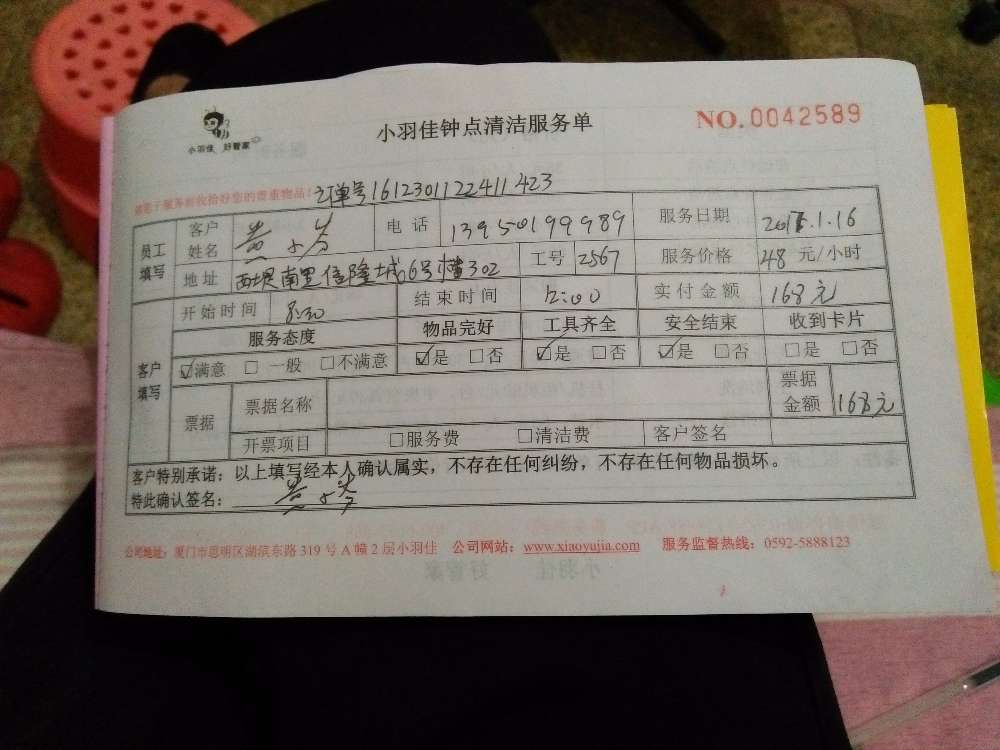 小羽佳 好管家
小羽佳钟点清洁服务单
NO.0042589
订单号1612301122411423
员工填写 客户姓名 电话 13950199989 服务日期 2017.1.16
地址 西堤南里信隆城66号楼302 工号 2567 服务价格 48 元/小时
开始时间 8:30 结束时间 12:00 实付金额 168元
客户填写 服务态度 物品完好 工具齐全 安全结束 收到卡片
☑满意 □一般 □不满意 ☑是 □否 ☑是 □否 ☑是 □否 □是 □否
票据 票据名称 票据金额 168元
开票项目 □服务费 □清洁费 客户签名
客户特别承诺：以上填写经本人确认属实，不存在任何纠纷，不存在任何物品损坏。
特此确认签名：
公司地址：厦门市思明区湖滨东路 319 号 A 幢 2 层小羽佳 公司网站：www.xiaoyujia.com 服务监督热线：0592-5888123